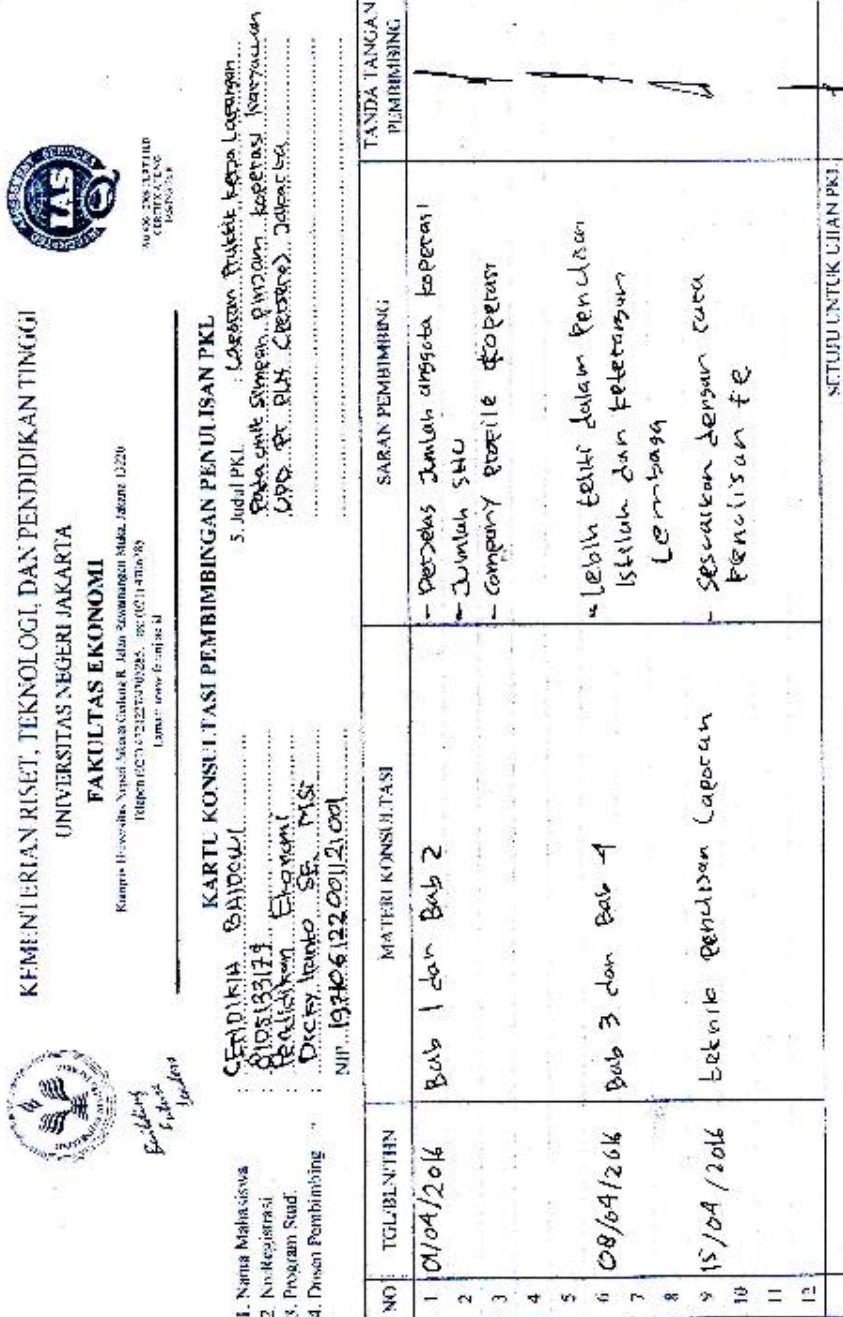 KEMENTERIAN RISET, TEKNOLOGI, DAN PENDIDIKAN TINGGI
UNIVERSITAS NEGERI JAKARTA
FAKULTAS EKONOMI
Kampus Universitas Negeri Jakarta Gedung R, Jalan Rawamangun Muka, Jakarta 13220
Building
Future
Leaders
KARTU KONSULTASI PEMBIMBINGAN PENULISAN PKL
1. Nama Mahasiswa : CENDIKIA BAIDOWI
2. No.Registrasi : 8105133179
3. Program Stud. : Pendidikan Ekonomi
4. Dosen Pembimbing : Dicky Iranto SE. MSi
NIP. 197106122001121001
5. Judul PKL : Laporan Praktik Kerja Lapangan
Pada Unit Simpan Pinjam Koperasi Karyawan
PT PLN (Persero) Jakarta
NO TGL/BLN/THN MATERI KONSULTASI SARAN PEMBIMBING TANDA TANGAN PEMBIMBING
1 01/04/2016 Bab 1 dan Bab 2 - Perjelas Jumlah anggota koperasi
2 - Jumlah SHU
3 - Company Profile Koperasi
4
5
6 08/04/2016 Bab 3 dan Bab 4 - Lebih teliti dalam Penulisan
7 Istilah dan keterangan
8 Lembaga
9 15/04/2016 teknik Penulisan Laporan - Sesuaikan dengan cara
10 Penulisan FE
11
12
SETUJU UNTUK UJIAN PKL